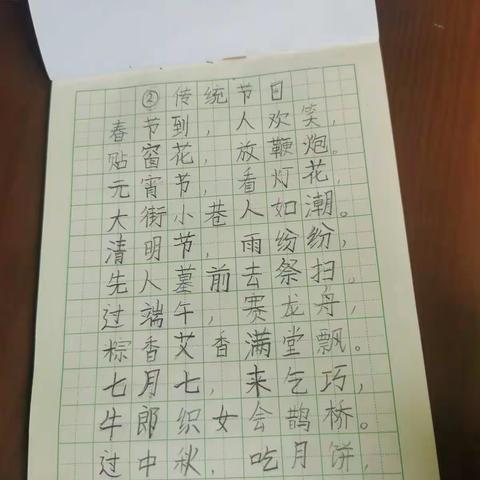 ②传统节日
春节到，人欢笑，
贴窗花，放鞭炮。
元宵节，看灯花，
大街小巷人如潮。
清明节，雨纷纷，
先人墓前去祭扫。
过端午，赛龙舟，
粽香艾香满堂飘。
七月七，来乞巧，
牛郎织女会鹊桥。
过中秋，吃月饼，